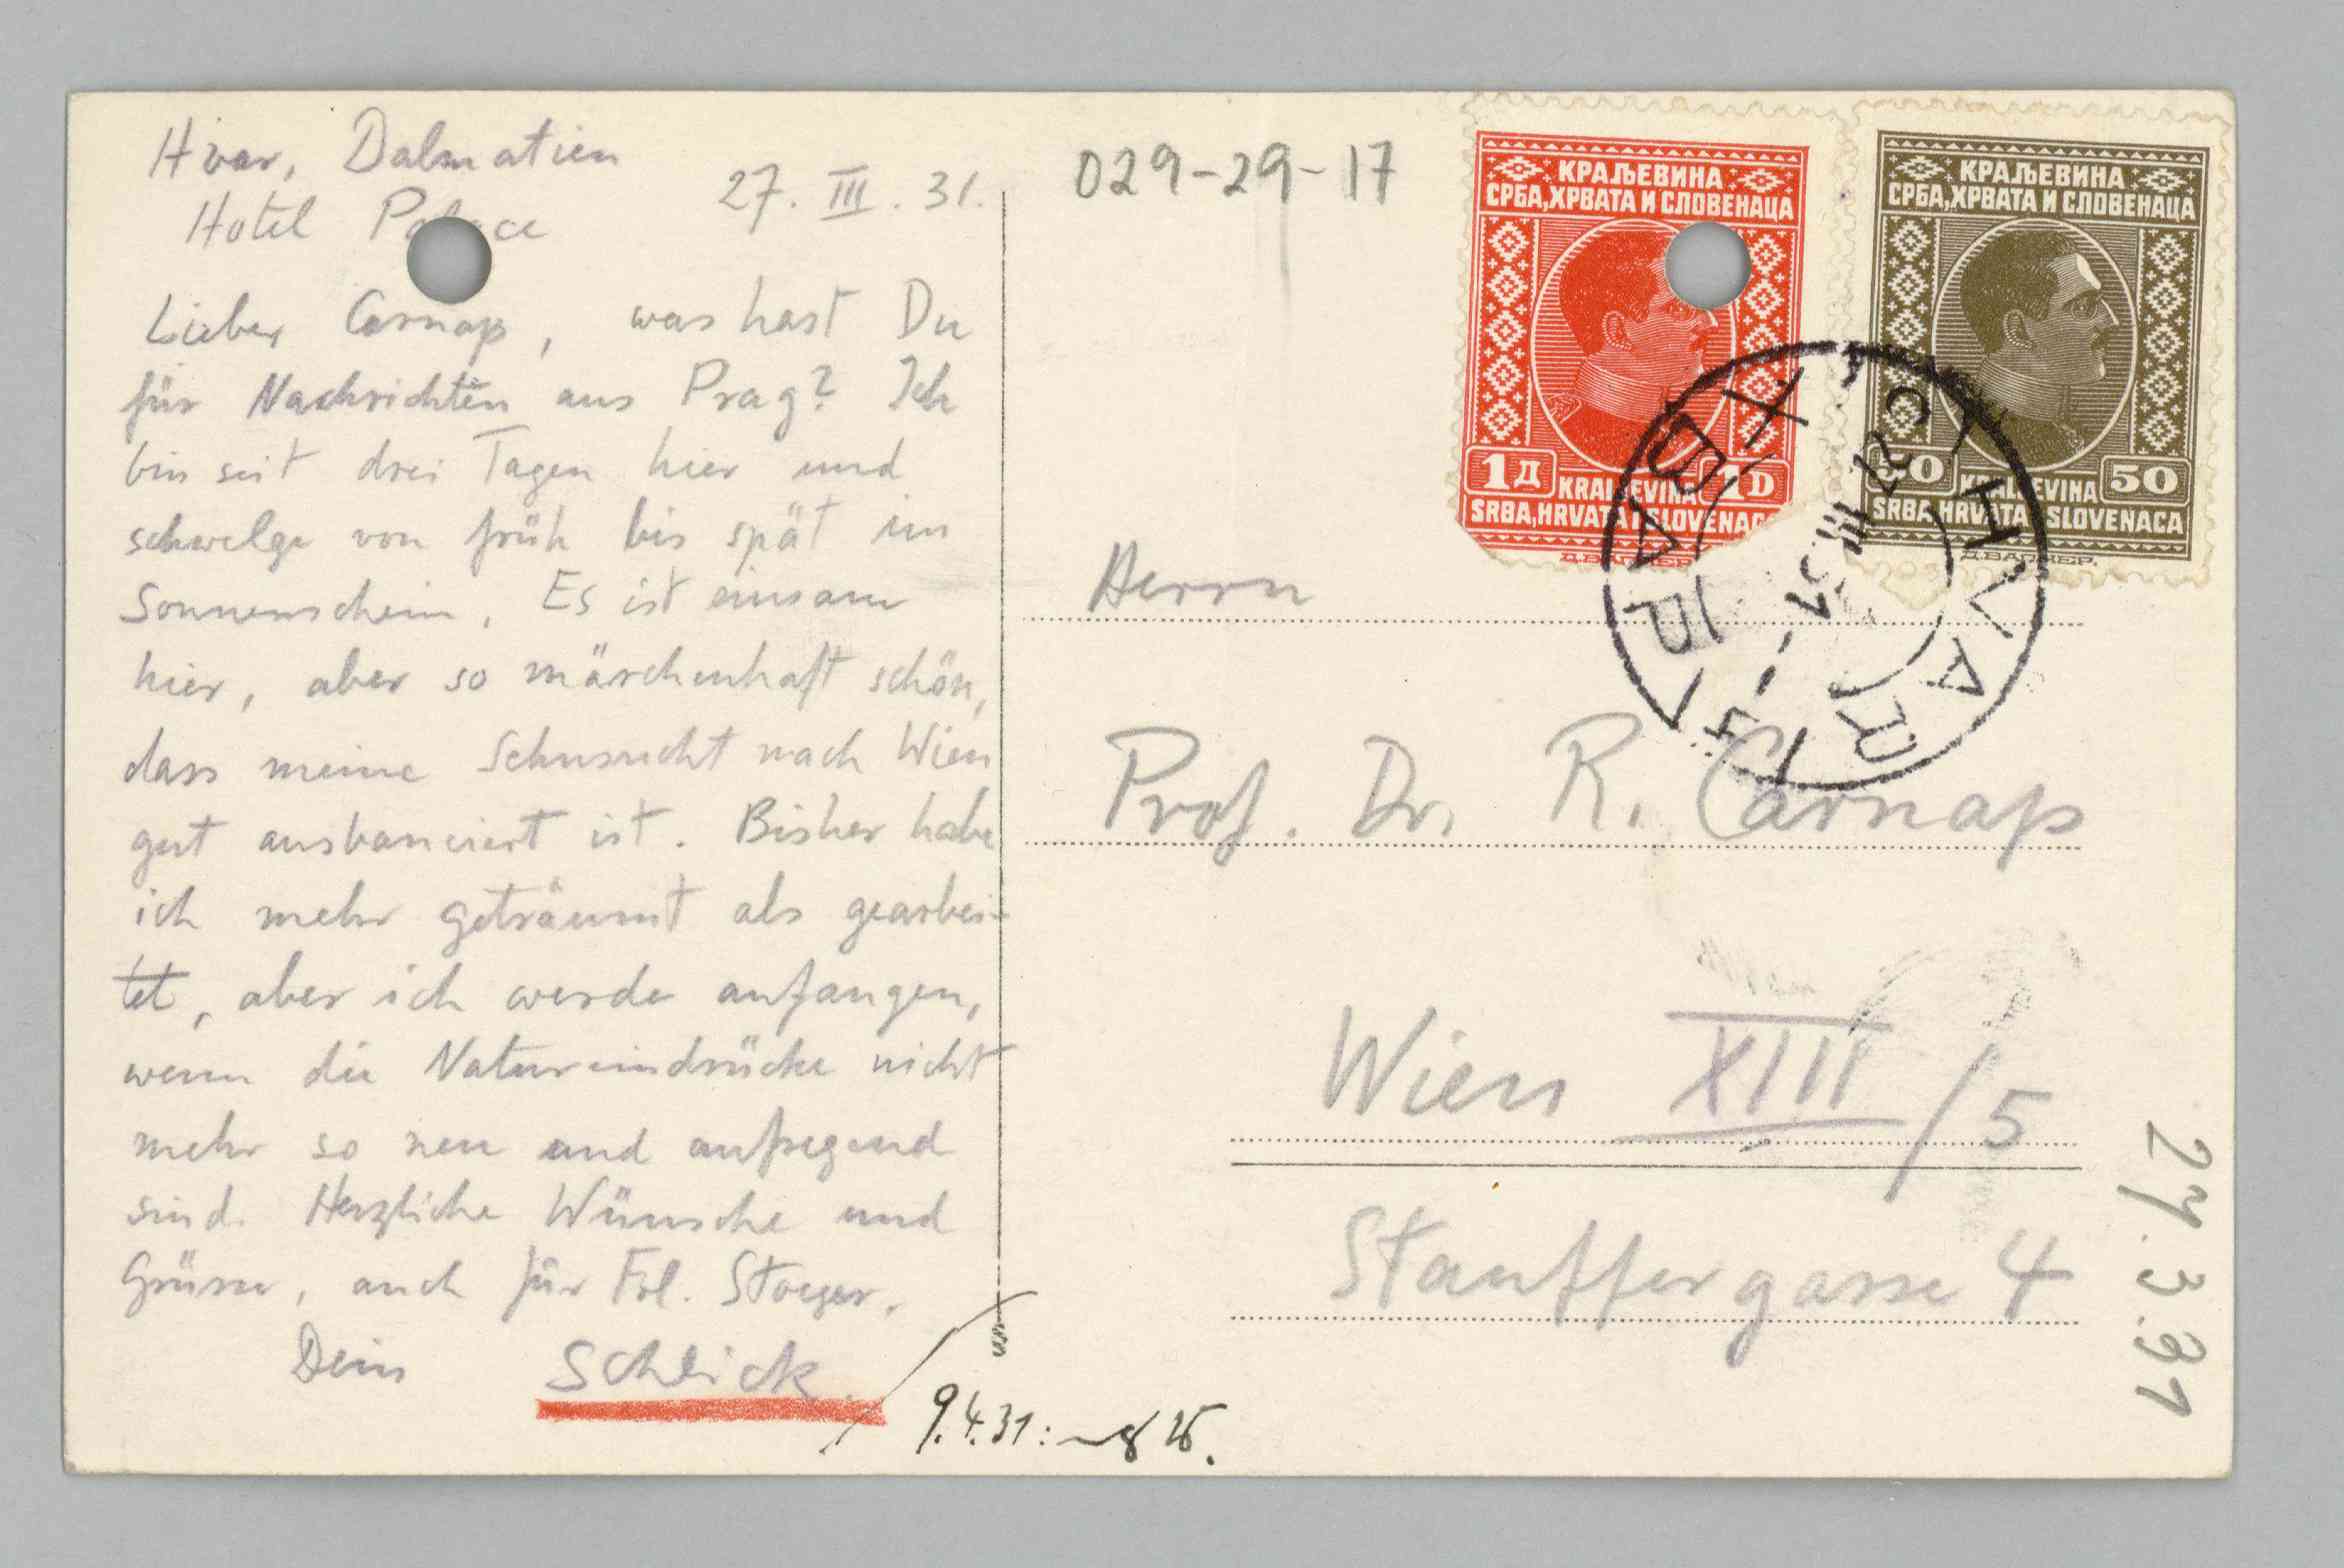 Hvar, Dalmatien
Hotel Palace
27. III. 31.
Lieber Carnap, was hast Du
für Nachrichten aus Prag? Ich
bin seit drei Tagen hier und
schwelge von früh bis spät im
Sonnenschein. Es ist einsam
hier, aber so märchenhaft schön,
dass meine Sehnsucht nach Wien
gut ausbanciert ist. Bisher habe
ich mehr geträumt als gearbei-
tet, aber ich werde anfangen,
wenn die Natureindrücke nicht
mehr so neu und aufregend
sind. Herzliche Wünsche und
Grüsse, auch für Frl. Stoeger.
Dein Schlick.
9.4.31:
029-29-17
КРАЉЕВИНА
СРБА, ХРВАТА И СЛОВЕНАЦА
1Д 1D
KRALJEVINA
SRBA, HRVATA I SLOVENACA
КРАЉЕВИНА
СРБА, ХРВАТА И СЛОВЕНАЦА
50 50
KRALJEVINA
SRBA, HRVATA I SLOVENACA
ХВАР
HVAR
Herrn
Prof. Dr. R. Carnap
Wien XIII/5
Stauffergasse 4
27.3.31